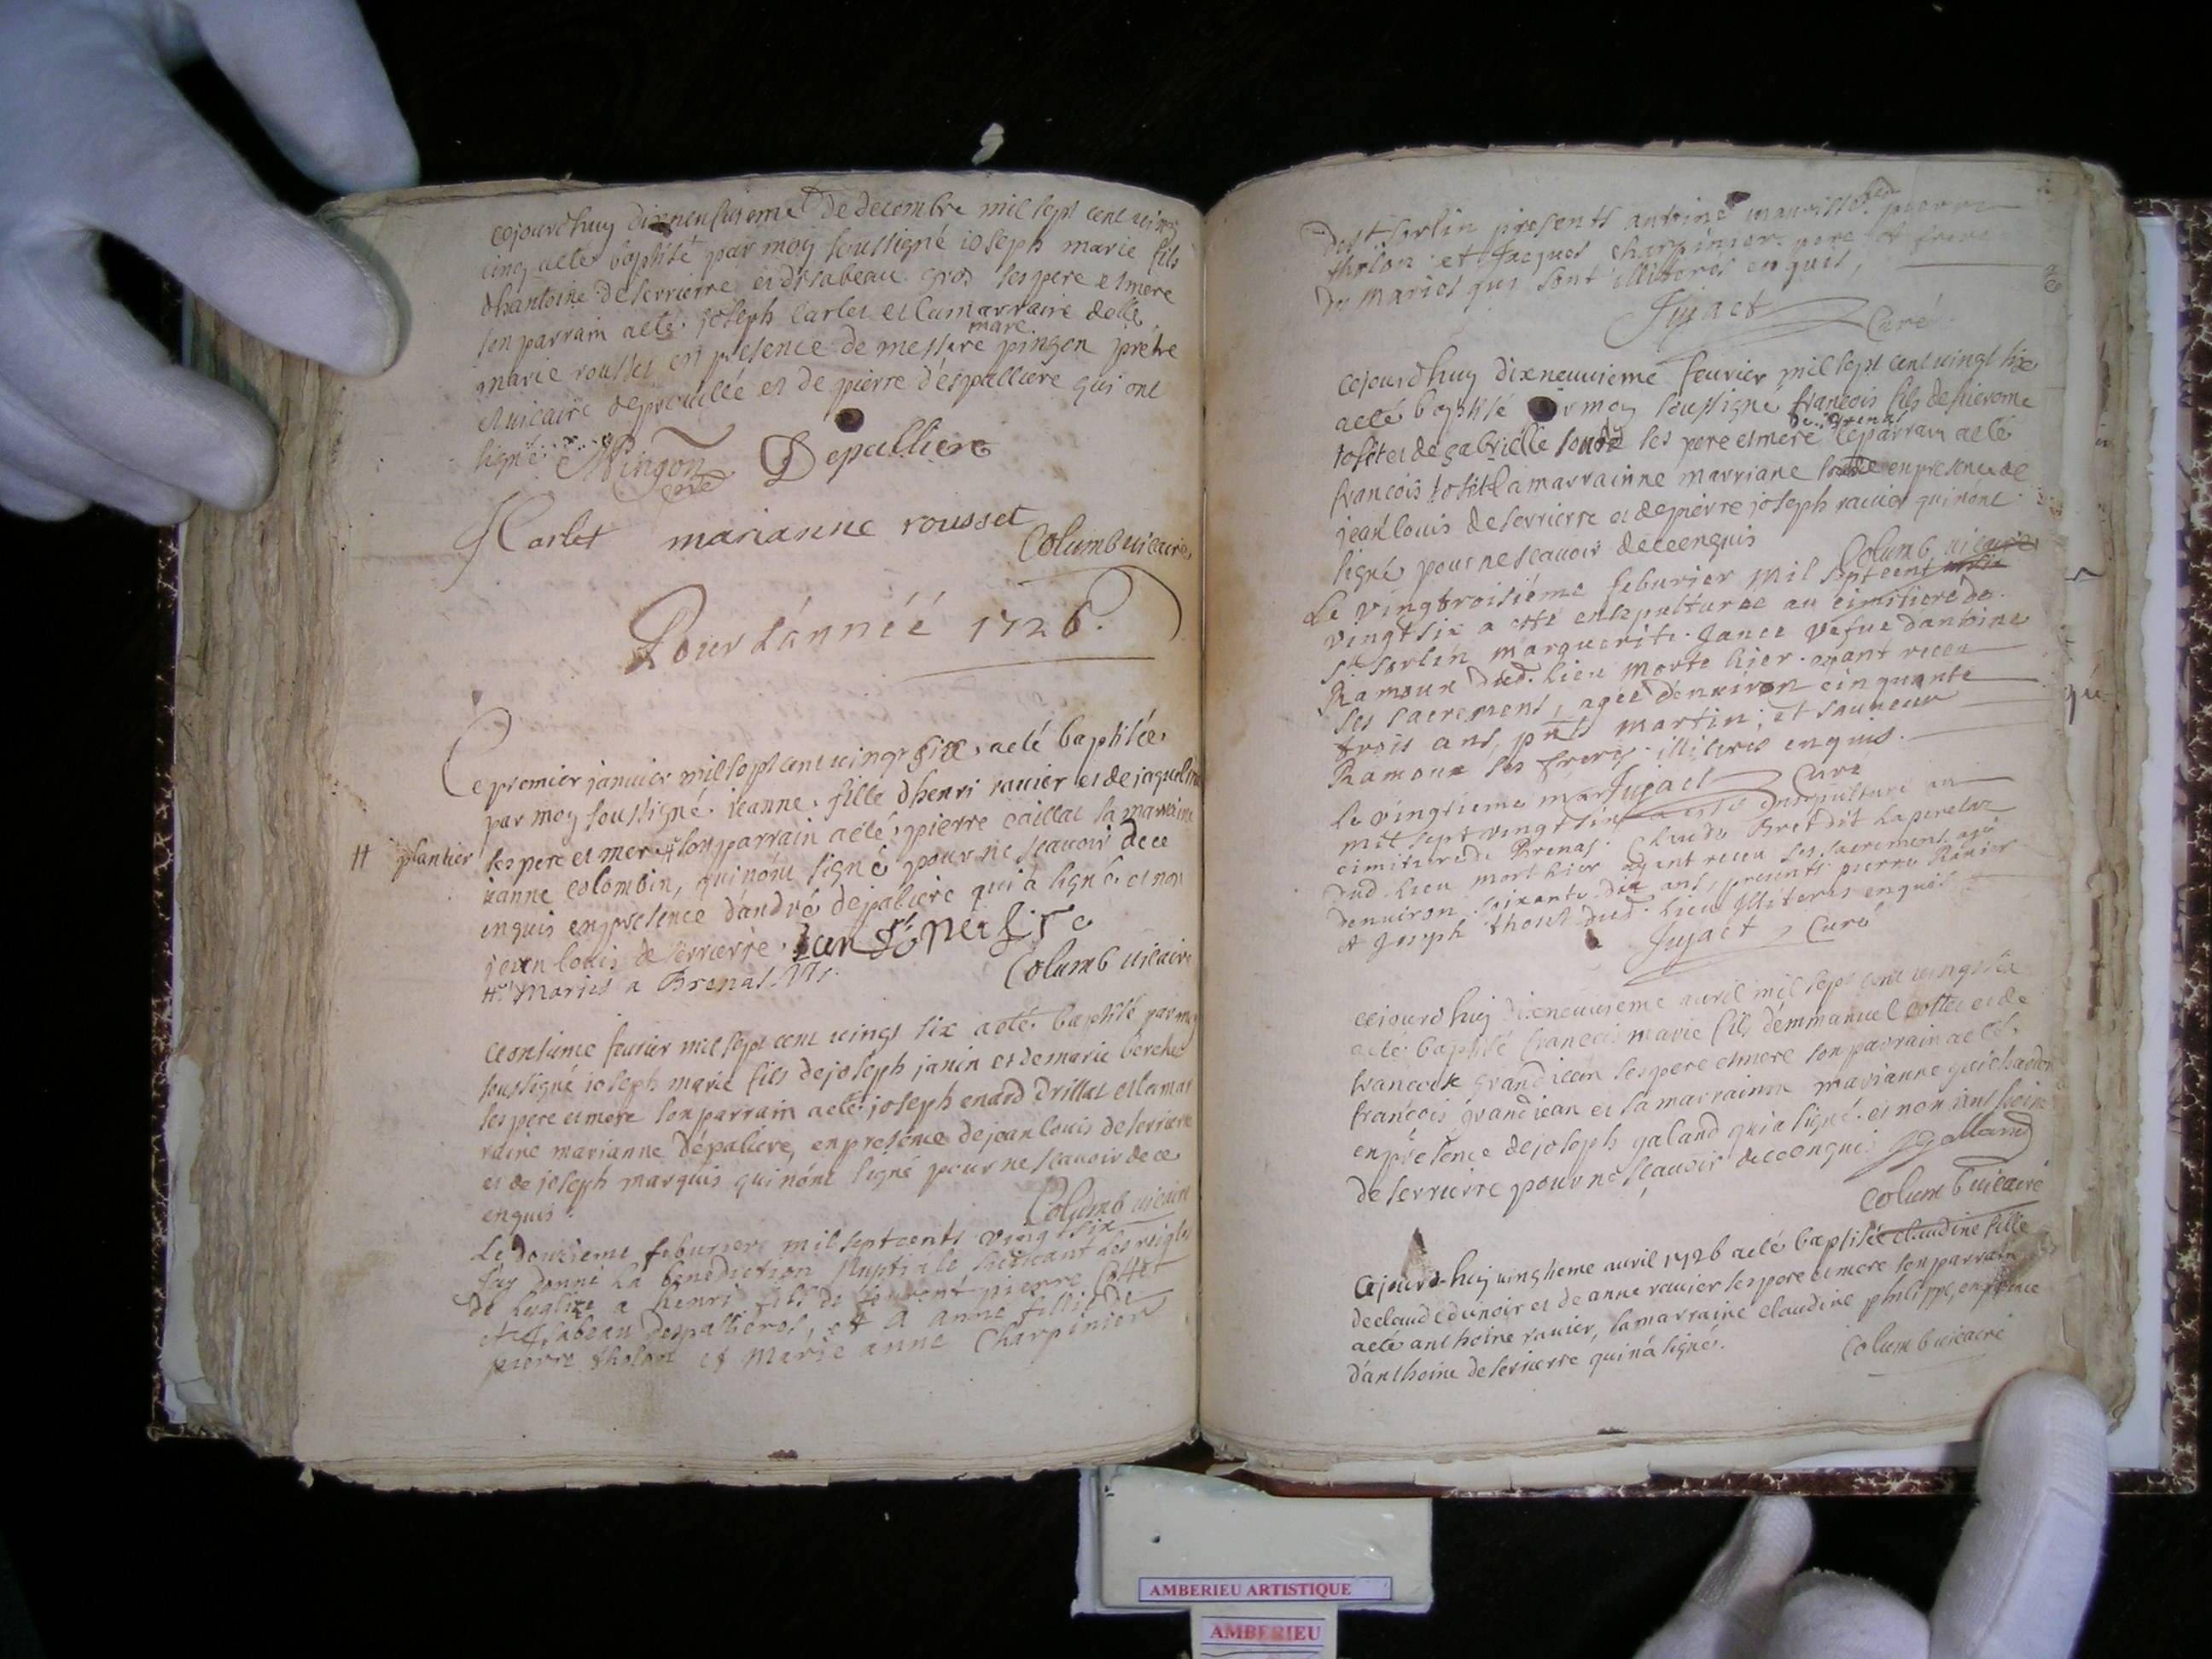 cejourdhuy dixneufuieme de decembre mil sept cent vingt
cinq a eté baptisé par moy soussigné ioseph marie fils
dhantoine deserrierre et disabeau gros ses pere et mere
son parrain a eté joseph Carlet et la marraine delle
marie rousset en presence de messire marc pingon prêtre
et vicaire de et de pierre despalliere qui ont
signé Pingon Depalliere
Carlet marianne rousset
Columb vicaire
Pour l'année 1726.
Ce premier januier mil sept cent vingt six, a eté baptisée
par moy soussigné jeanne fille dhenri rauier et de jaqueline
# plantier ses pere et mere # son parrain a eté pierre caillat sa marraine
jeanne colombin, qui nont signé pour ne scauoir de ce
enquis en presence dandré depaliere qui à signé et non
jean louis deserrierre.
# Mariés a Brenas
Columb vicaire
ce onsieme feurier mil sept cent vingt six a eté baptisé par moy
soussigné ioseph marie fils de joseph janin et de marie berchet
ses pere et mere son parrain a eté joseph enard drillat et la mar
raine marianne depaliere, en presence de jean louis deserriere
et de joseph marquis qui nónt signé pour ne scauoir de ce
enquis.
Columb vicaire
Le douzieme feburier mil sept cents vingt six
Jay donné La benediction Nuptiale suiuant les reigles
de Leglize a henri fils de pierre Cottet
et Isabeau despallieres, et a anne fillie de
pierre tholon et Marie anne Charpinier
de St Sorlin presents antoine pierre
tholon et Jacques charpinier pere et frere
des Mariés qui sont illiterés enquis,
Jujact Curé
cejourdhuy dixneuuieme feurier mil sept cent vingt six
a eté baptisé par moy soussigné françois fils de hierome
tosit et de gabrielle ses pere et mere de Brenas le parrain a eté
francois tosit la marrainne marriane en presence de
jean louis deserrierre et de pierre joseph rauier qui nónt
signé pour ne scauoir de ce enquis
Columb vicaire
Le vingtroisiéme feburier Mil sept cent
vingt six a esté ensepulturée au cimitiere de
St Sorlin marguerite Jance vefue dantoine
Ramoux dud. Lieu morte hier ayant receu
ses sacrements, agée denuiron cinquante
trois ans, pnts martin, et sauueur
Ramoux ses freres illiterés enquis.
Jujact Curé
le vingtieme mars
mil sept vingt six a esté ensepulturé au
cimitiere de Brenas Claude Bret dit
dud. Lieu mort hier ayant receu ses sacrements, agé
denuiron soixante dix ans, presents pierre Rauier
et Joseph thosit dud. Lieu Illiterés enquis
Jujact Curé
cejourdhuy dixneuuieme auril mil sept cent vingt six
a eté baptisé francois marie fils démmanuel cottet et de
francoise grandjean ses pere et mere son parrain a eté
françois grandjean et sa marrainne marianne guichardon
en presence de joseph galand qui à signé et non anthoine
deserrierre pour ne scauoir de ce enquis J Galland
Columb vicaire
Cejourdhuy vingtieme auril 1726 a eté baptisée claudine fille
de claude dunoir et de anne rauier ses pere et mere son parrain
a eté anthoine rauier, la marraine claudine philippe, en presence
dánthoine deserierre qui ná signé.
Columb vicaire
AMBERIEU ARTISTIQUE
AMBERIEU